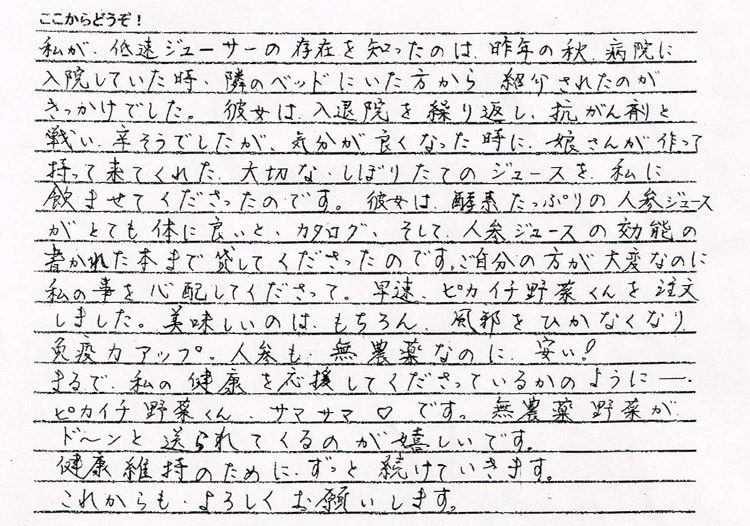 ここからどうぞ！
私が、低速ジューサーの存在を知ったのは、昨年の秋、病院に
入院していた時、隣のベッドにいた方から 紹介されたのが
きっかけでした。 彼女は、入退院を繰り返し、抗がん剤と
戦い、辛そうでしたが、気分が良くなった時に、娘さんが作って
持って来てくれた、大切な、しぼりたてのジュースを、私に
飲ませてくださったのです。 彼女は、酵素たっぷりの人参ジュース
がとても体に良いと、カタログ、そして、人参ジュースの効能の
書かれた本まで貸してくださったのです。ご自分の方が大変なのに
私の事を心配してくださって。早速、ピカイチ野菜くんを注文
しました。美味しいのは、もちろん、風邪をひかなくなり
免疫力アップ。人参も、無農薬なのに、安い！
まるで、私の健康を応援してくださっているかのように―。
ピカイチ野菜くん サマサマ♡です。無農薬野菜が
ド〜ンと送られてくるのが嬉しいです。
健康維持のために、ずっと続けていきます。
これからも、よろしくお願いします。